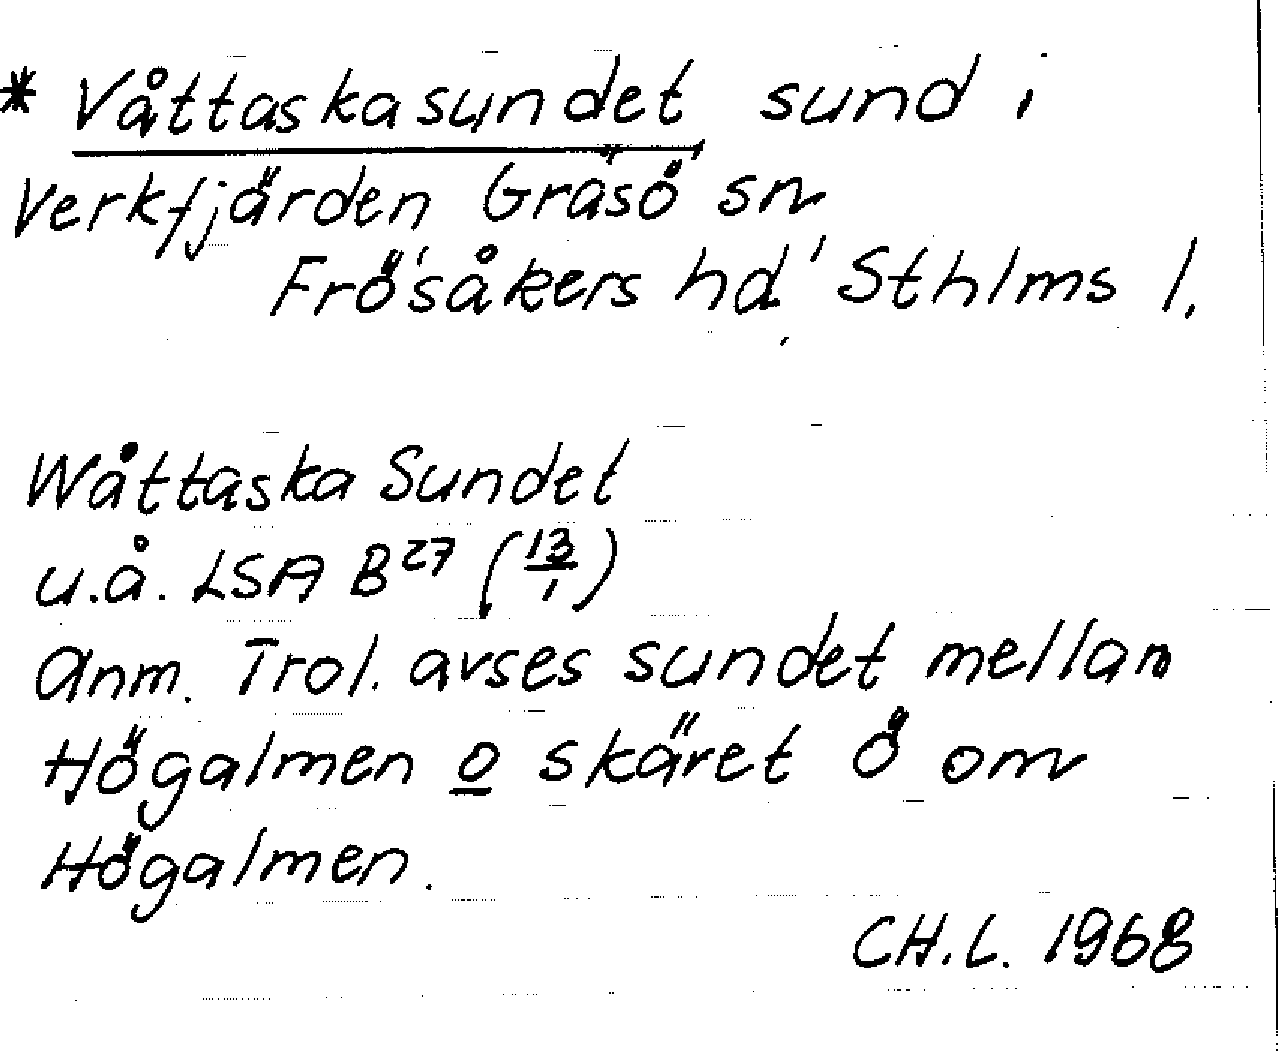 * Våttaskasundet sund i
Verkfjärden Gräsö sn
Frösåkers hd Sthlms l.
Wåttaska Sundet
u.å. LSA B27 (13/1)
Anm. Trol. avses sundet mellan
Högalmen o skäret Ö om
Högalmen.
CH.L. 1968